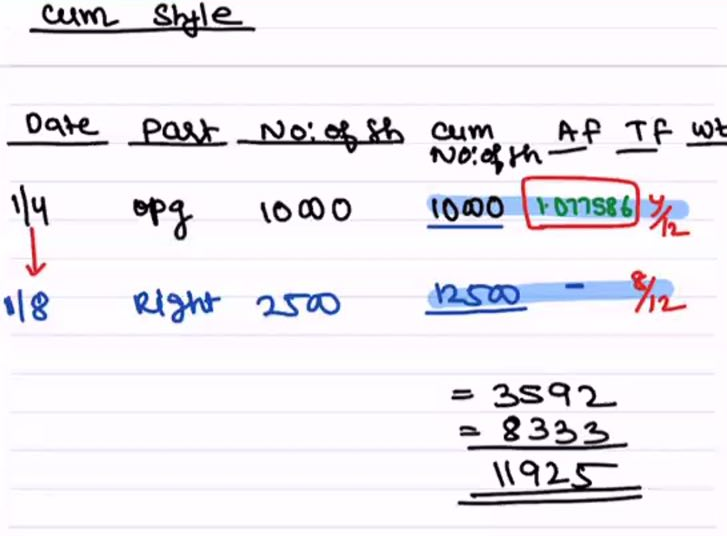 Cum Style
Date Past No: of Sh Cum No: of sh Af Tf Wt
1/4 opg 10000 10000 1.077586 4/12
1/8 Right 2500 12500 - 8/12
= 3592
= 8333
11925